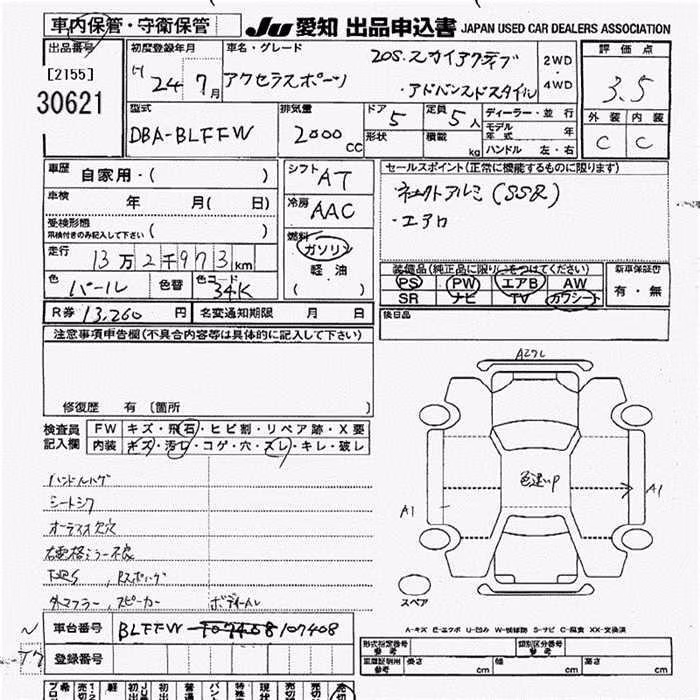 車内保管・守衛保管 JU 愛知 出品申込書 JAPAN USED CAR DEALERS ASSOCIATION
出品番号 初度登録年月 車名・グレード 20S.スカイアクティブ 2WD 評価点
[2155] H 24年7月 アクセラスポーツ ・アドバンスドスタイル ・4WD 3.5
30621
型式 排気量 ドア 5 定員 5人 ディーラー・並行 外装 内装
DBA-BLFFW 2000cc 形状 積載 kg モデル年式 年 C C
ハンドル 左・右
車歴 自家用・( ) シフト AT セールスポイント(正常に機能するものに限ります)
車検 年 月( 日) 冷房 AAC ・社外アルミ(SSR)
受検形態 ( ) ・エアロ
※検付きのみ記入して下さい
走行 13万2千973km 燃料 ガソリン
軽油
( )
装備品(純正品に限り○をつけてください) 新車保証書
色 パール 色替 色コード 34K PS PW エアB AW 有・無
SR ナビ TV カワシート
R券 13,260円 名変通知期限 月 日 後日品
注意事項申告欄(不具合内容等は具体的に記入して下さい)
修復歴 有 〔箇所 〕
検査員 FW キズ・飛石・ヒビ割・リペア跡・X要
記入欄 内装 キズ・汚レ・コゲ・穴・スレ・キレ・破レ
ハンドルハゲ
シートシワ
オーディオ欠穴
右電格ミラー不良
外マフラー,スピーカー ボディーキズ
A2クレ
色違いP
A1
A1
スペア
A-キズ E-エクボ U-凹み W-補修跡 S-サビ C-腐食 XX-交換済
車台番号 BLFFW-107408 107408
登録番号
形式指定番号 参考 類別区分番号 参考
車庫証明用 参考 長さ cm 幅 cm 高さ cm